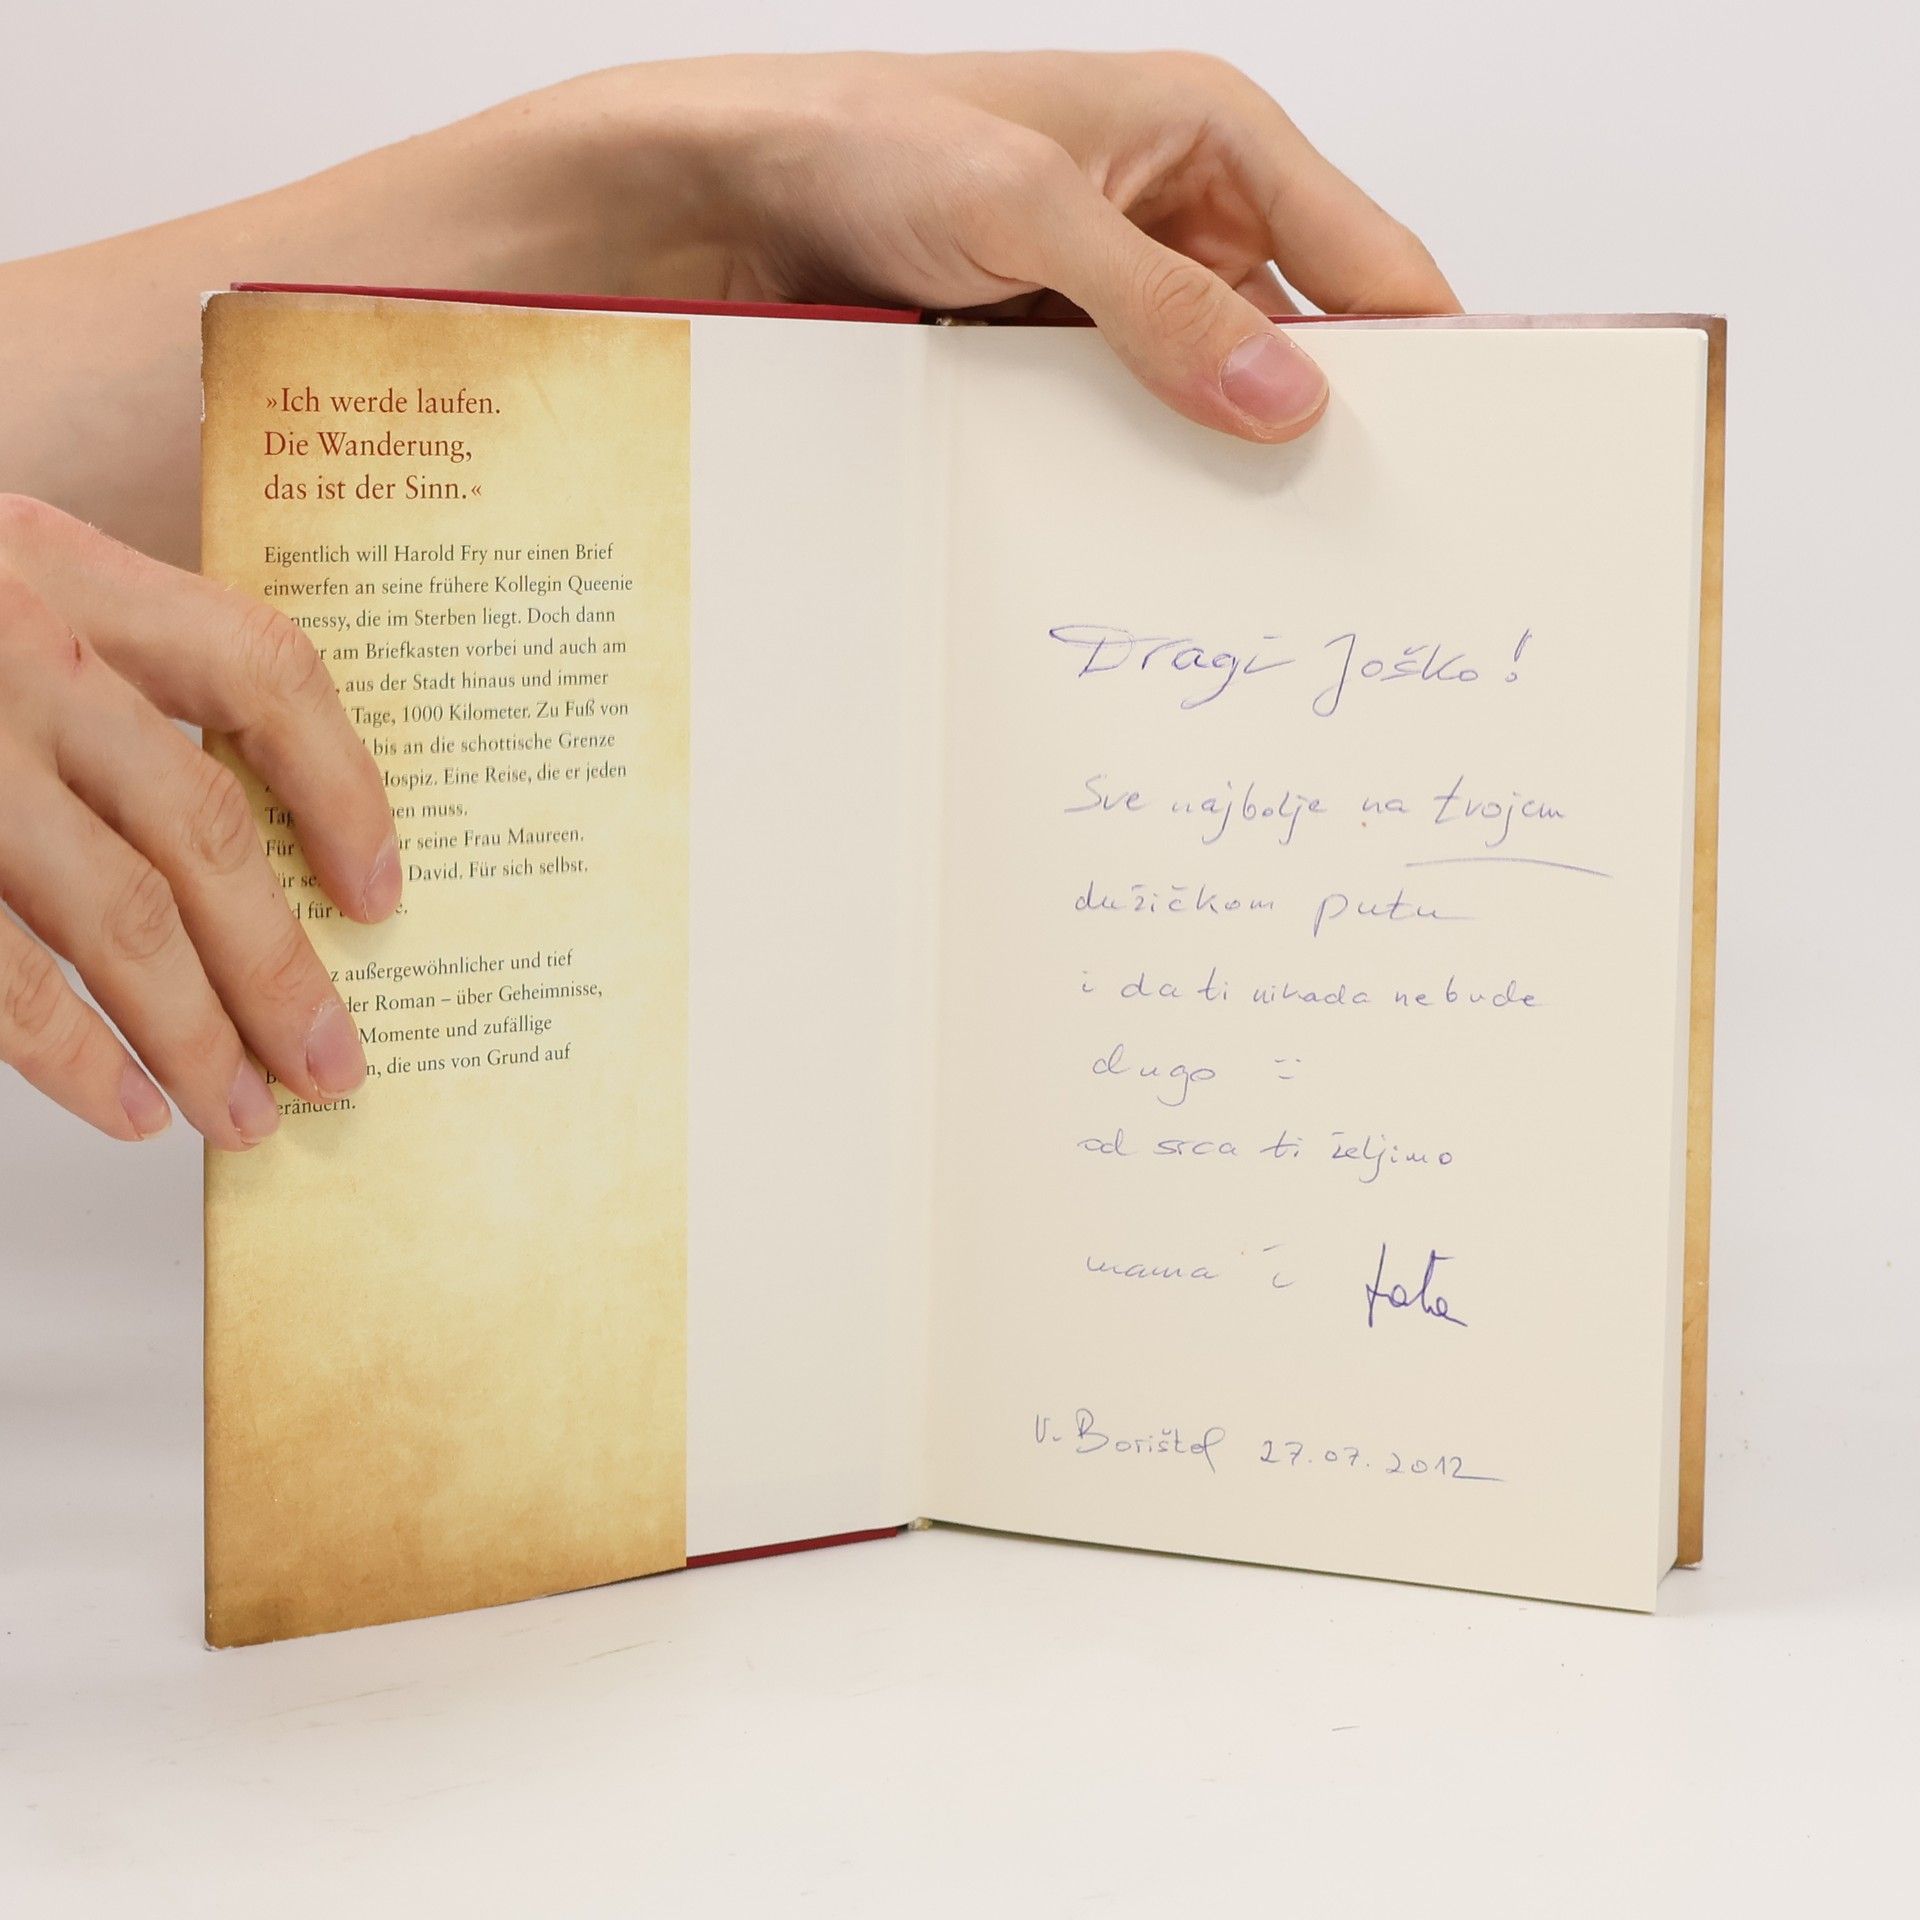 »Ich werde laufen.
Die Wanderung,
das ist der Sinn.«
Eigentlich will Harold Fry nur einen Brief
einwerfen an seine frühere Kollegin Queenie
nnessy, die im Sterben liegt. Doch dann
r am Briefkasten vorbei und auch am
, aus der Stadt hinaus und immer
Tage, 1000 Kilometer. Zu Fuß von
bis an die schottische Grenze
Hospiz. Eine Reise, die er jeden
Tag en muss.
Für ür seine Frau Maureen.
ür se David. Für sich selbst.
d für e.
z außergewöhnlicher und tief
der Roman – über Geheimnisse,
Momente und zufällige
B n, die uns von Grund auf
erändern.
Dragi Joško!
Sve najbolje na tvojem
dužičkom putu
i da ti nikada ne bude
dugo
od srca ti željimo
mama i tata
V. Borištof 27.07.2012